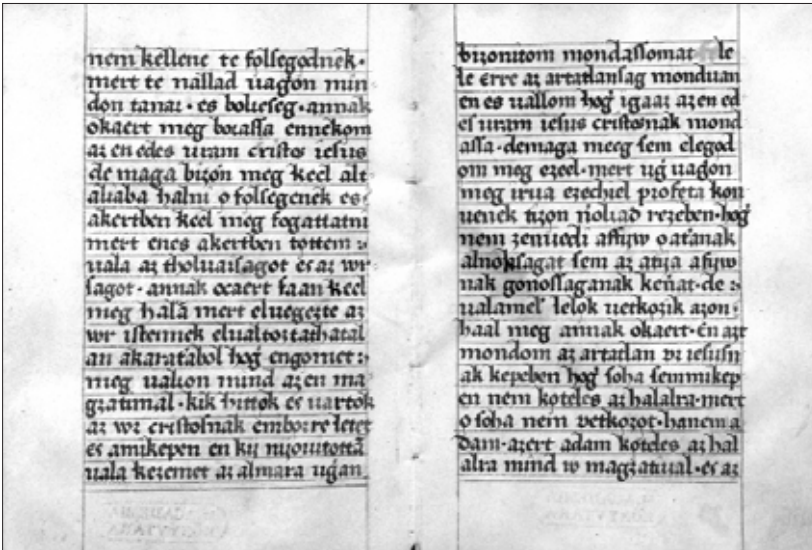 nem kellene te folsegodnek·
mert te nallad uagon min
don tanaz· es bolcseseg· annak
okaert meg bocassa ennekom
az en edes uram cristos iesus
de maga bizon meg keel alt
aliaba halni o folsegenek es
akertben keel meg fogattatni
mert enes akertben tottem
uala az tholuaisagot es az wr
sagot· annak ocaert faan keel
meg halā mert eluegezte az
wr istennek elualtoztathatat
an akaratabol hog engomet
meg ualcon mind azen ma
gzatimal· kik hittok es uartok
az wr cristosnak emborre letet
es amikepen en ki nioitottā
uala kezemet az almara ugan
bizonitom mondassomat le
le Erre az artatlansag monduan
en es uallom hog igaaz azen ed
es uram iesus cristosnak mond
assa· demaga meeg sem elegod
om meg ezeel· mert ug uagon
meg irua ezechiel profeta kon
uenek tizon niolcad rezeben· hog
nem zenuedi affyw oatanak
alnoksagat sem az atya afyw
nak gonossaganak kennat· de
ualamel lelok uetkozik azon
haal meg annak okaert· En azt
mondom az artatlan vr iesusn
ak kepeben hog soha semmikep
en nem koteles az halalra· mert
o soha nem vetkozot· hanem a
dam· azert adam koteles az hal
alra mind w magzatiual· es az